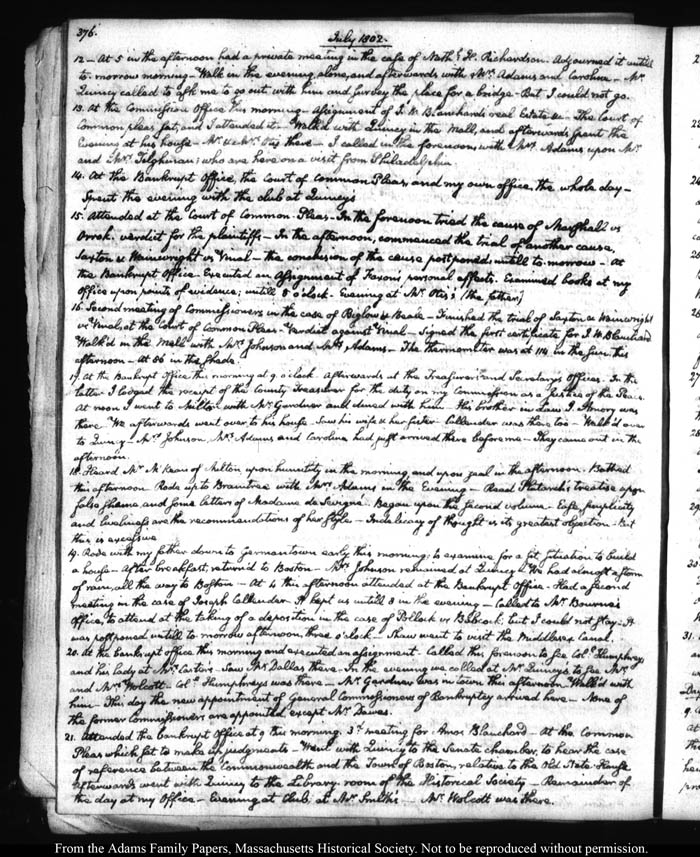 376.
July 1802.
12 — At 5 in the afternoon had a private meeting in the case of Nath! & H. Richardson. Adjourned it untill
to-morrow morning — Walk in the evening, alone, and afterwards with Mrs. Adams and Caroline — Mr.
Quincy called to ask me to go out with him and survey the place for a bridge — But I could not go.
13. At the Commission Office this morning — Assignment of J. W. Blanchard's real Estate &c — The Court of
Common pleas sat, and I attended it — Walk'd with Quincy in the Mall, and afterwards spent the
Evening at his house — Mr. & Mrs. Otis there — I called in the forenoon with Mrs. Adams upon Mr.
and Mrs. Tilghman; who are here on a visit from Philadelphia.
14. At the Bankrupt Office, the Court of Common Pleas, and my own office, the whole day —
Spent the evening with the club at Quincy's
15. Attended at the Court of Common-Pleas — In the forenoon tried the cause of Marshall vs
Orrok, verdict for the plaintiffs — In the afternoon, commenced the trial of another cause,
Saxton & Wainwright vs Vinal — the conclusion of the cause postponed, untill to-morrow — At
the Bankrupt Office. Executed an Assignment of personal effects. Examined books at my
Office upon points of evidence; untill 8 o'clock — Evening at Mr. Otis's, (the father)
16. Second meeting of Commissioners in the case of Bigelow & Beale — Finished the trial of Saxton & Wainwright
vs Vinal, at the Court of Common Pleas — Verdict against Vinal — Signed the first certificate for J. W. Blanchard
Walk'd in the Mall with Mrs. Johnson and Mrs. Adams — The thermometer was at 114 in the sun this
afternoon — At 86 in the shade.
17. At the Bankrupt office this morning at 9. o'clock. Afterwards at the Treasurer's and Secretary's Offices. In the
latter I lodged the receipt of the County Treasurer for the duty on my Commission as a Justice of the Peace.
At noon I went to Milton with Mr. Gardner and dined with him — His brother in Law J. Amory was
there. We afterwards went over to his house. Saw his wife & her sister. Callender was there too — Walk'd over
to Quincy — Mrs. Johnson, Mrs. Adams and Caroline had just arrived there before me — They came out in the
afternoon.
18. Heard Mr. McKean of Milton upon humility in the morning, and upon zeal in the afternoon. Bathed
this afternoon. Rode up to Braintree with Mrs. Adams in the Evening — Read Plutarch's treatise upon
false shame, and some letters of Madame de Sevigné. Began upon the second volume — Ease, simplicity
and liveliness are the recommendations of her style — Indelicacy of thought is its greatest objection — But
this is excessive
19. Rode with my father down to Germantown early this morning; to examine for a fit situation to build
a house — After breakfast, return'd to Boston — Mrs. Johnson remained at Quincy — We had almost a storm
of rain, all the way to Boston — At 4 this afternoon attended at the Bankrupt Office. Had a second
meeting in the case of Joseph Callender — It kept us untill 8 in the evening — Called to Mr. Bourne's
Office, to attend at the taking of a deposition in the case of Pollock vs Babcock, but I could not stay — It
was postponed untill to-morrow afternoon, three o'clock — Shaw went to visit the Middlesex Canal.
20. At the bankrupt office this morning and executed an assignment. Called this forenoon to see Coll. Humphreys
and his lady at Mrs. Carter's. Saw Mr. Dallas there. In the evening we called at Mr. Quincy's to see Mr.
and Mrs. Wolcott. Coll. Humphreys was there — Mr. Gardner was in town this afternoon. Walk'd with
him — This day the new appointment of General Commissioners of Bankruptcy arrived here — None of
the former Commissioners are appointed except Mr. Dawes.
21. Attended the bankrupt Office at 9 this morning. 3d. meeting for Amos Blanchard — At the Common
Pleas which sat to make up judgments — Went with Quincy to the Senate chamber, to hear the case
of reference between the Commonwealth and the Town of Boston, relative to the Old State-House
afterwards went with Quincy to the Library-room of the Historical Society — Remainder of
the day at my Office — Evening at Club; at Mr. Smith's — Mr. Wolcott was there.
From the Adams Family Papers, Massachusetts Historical Society. Not to be reproduced without permission.